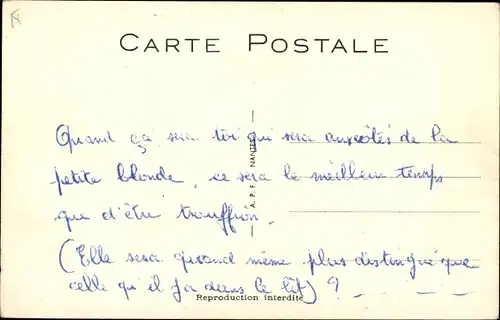 CARTE POSTALE
Quand ça sera toi qui sera aux côtés de la
petite blonde, ce sera le meilleur temps
que d'être trouffion.
(Elle sera quand même plus distingué que
celle qu'il y a dans le lit) ?
A. P. F. NANTES
Reproduction interdite